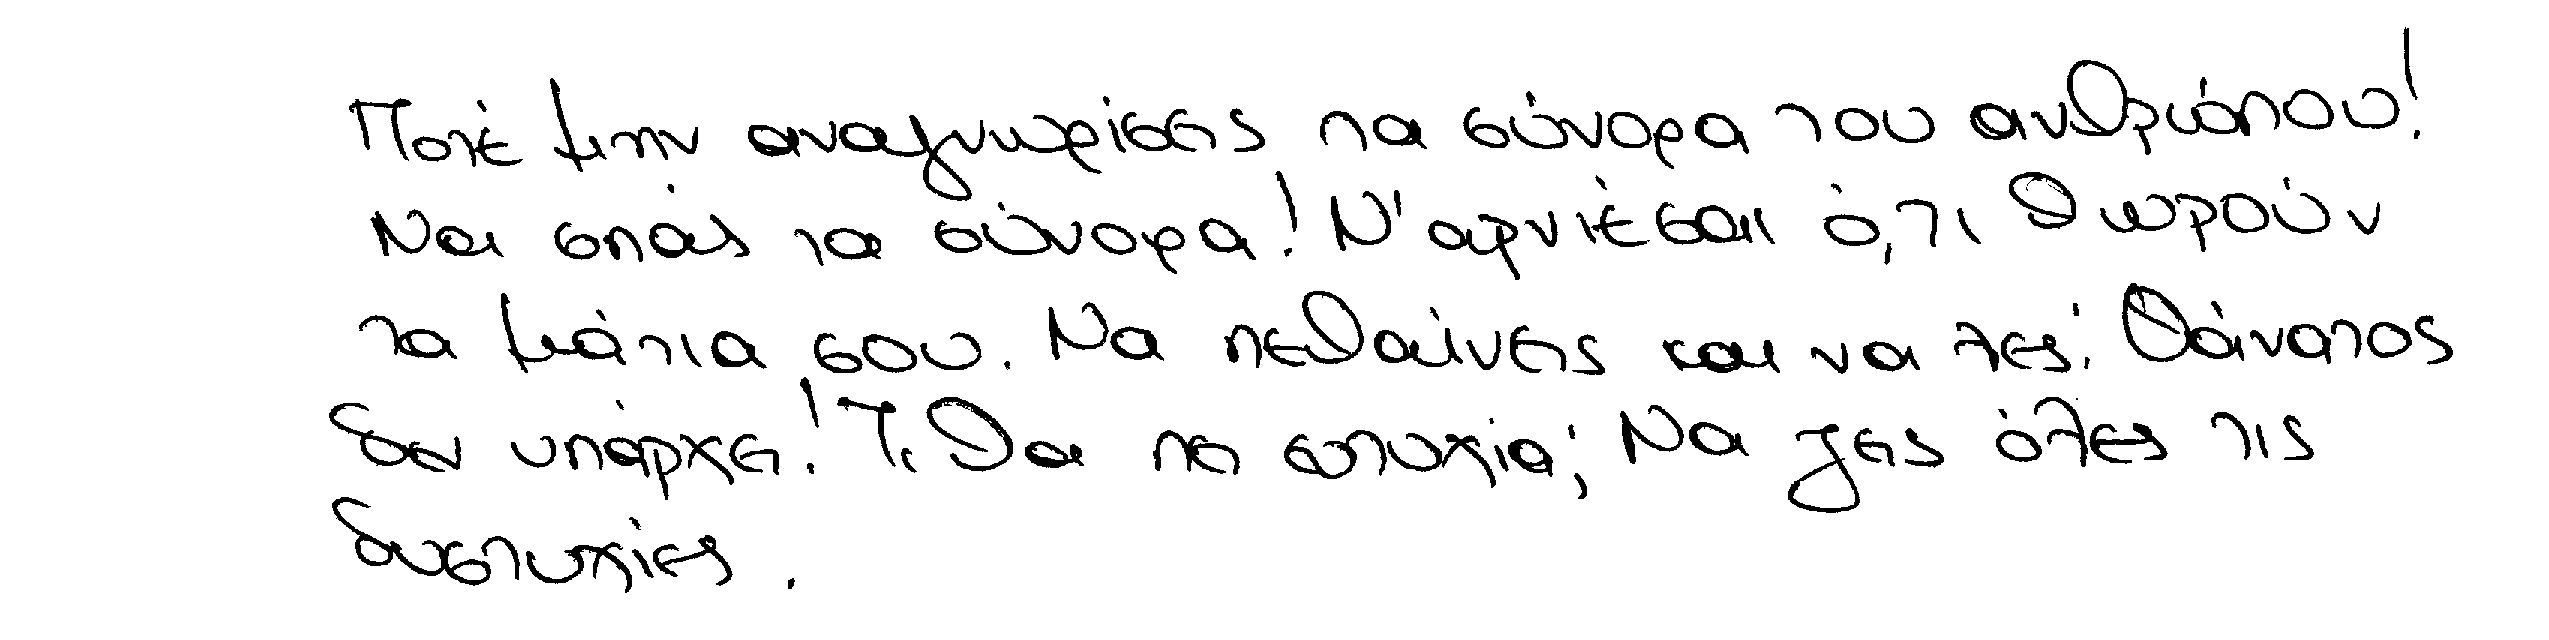 Ποτέ μην αναγνωρίσεις τα σύνορα του ανθρώπου!
Να σπάς τα σύνορα! Ν' αρνιέσαι ό,τι θωρούν
τα μάτια σου. Να πεθαίνεις και να λες: Θάνατος
δεν υπάρχει! Τι θα πει ευτυχία; Να ζεις όλες τις
δυστυχίες.